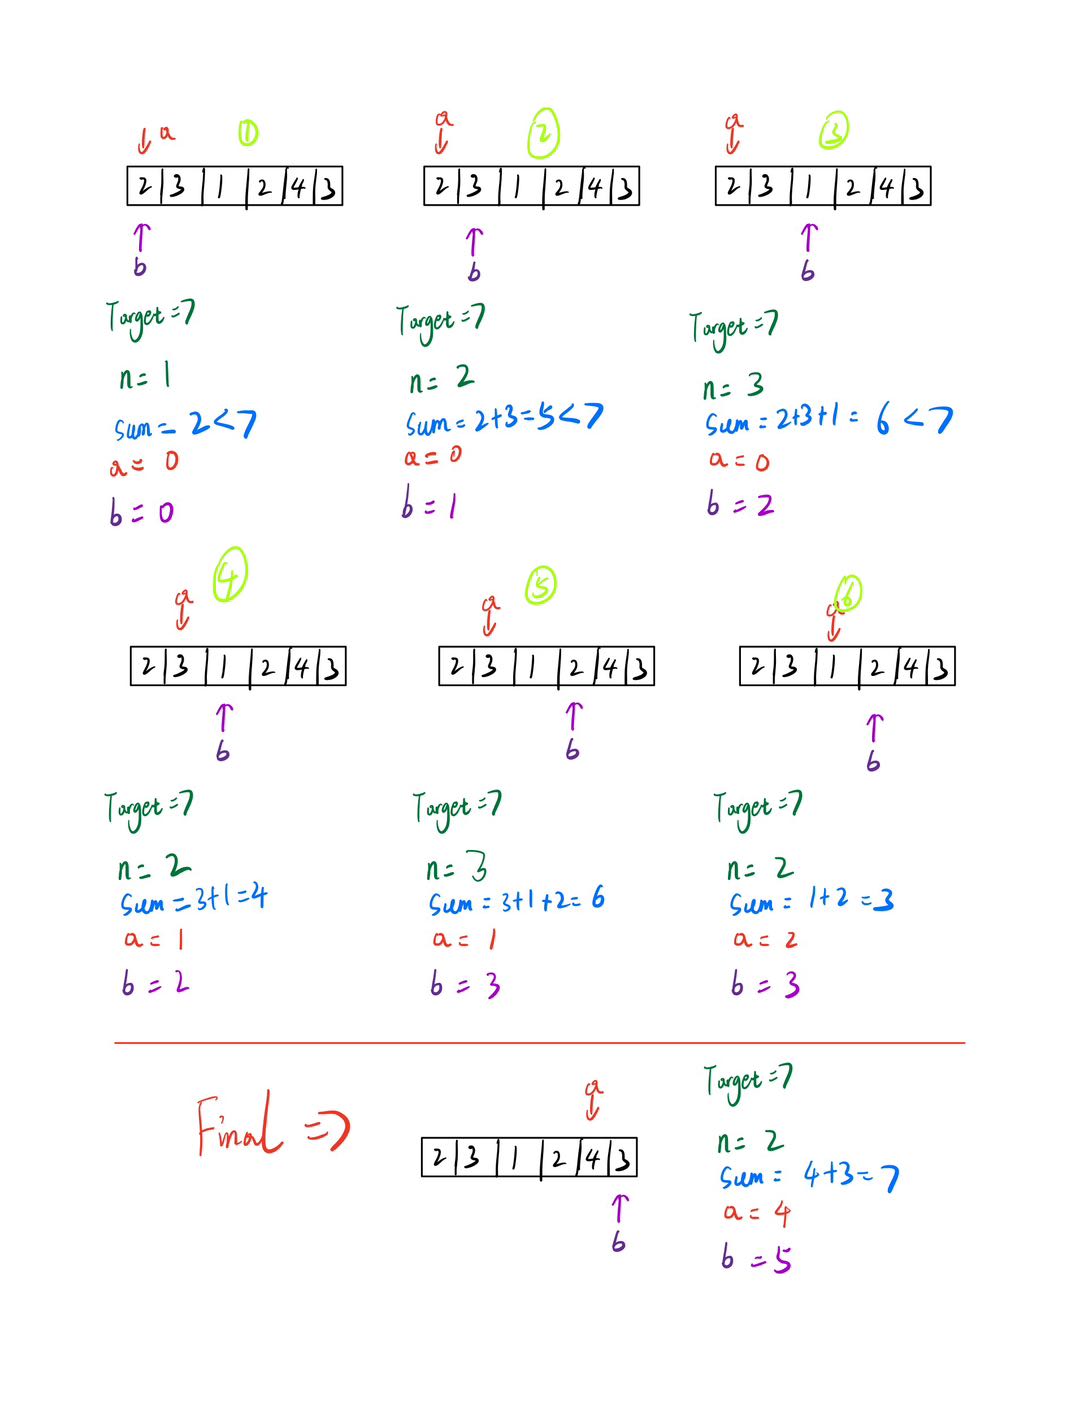 a ①
2 3 1 2 4 3
b
Target=7
n= 1
Sum= 2<7
a= 0
b= 0
a ②
2 3 1 2 4 3
b
Target=7
n= 2
Sum=2+3=5<7
a=0
b=1
a ③
2 3 1 2 4 3
b
Target=7
n= 3
Sum=2+3+1= 6<7
a=0
b=2
a ④
2 3 1 2 4 3
b
Target=7
n= 2
Sum=3+1=4
a= 1
b=2
a ⑤
2 3 1 2 4 3
b
Target=7
n= 3
Sum=3+1+2=6
a= 1
b=3
a ⑥
2 3 1 2 4 3
b
Target=7
n= 2
Sum= 1+2=3
a= 2
b=3
Final =>
a
2 3 1 2 4 3
b
Target=7
n= 2
Sum= 4+3=7
a= 4
b=5